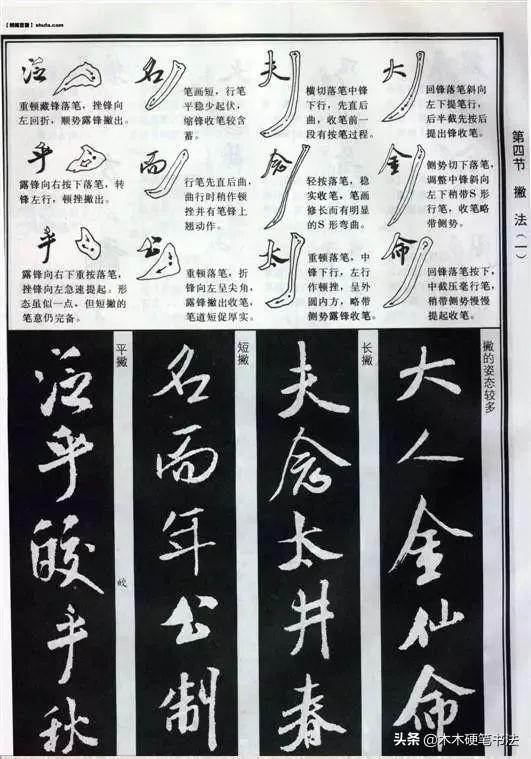 【书画百家】shufa.com
第四节 撇法(一)
大
回锋落笔斜向
左下提笔行,
后半截先按后
提出锋收笔。
夫
横切落笔中锋
下行,先直后
曲,收笔前一
段有按笔过程。
名
笔画短,行笔
平稳少起伏,
缩锋收笔较含
蓄。
泛
重顿藏锋落笔,挫锋向
左回折,顺势露锋撇出。
金
侧势切下落笔,
调整中锋斜向
左下稍带S形
行笔,收笔略
带侧势。
念
轻按落笔,稳
实收笔,笔画
修长而有明显
的S形弯曲。
而
行笔先直后曲,
曲行时稍作顿
挫并有笔锋上
翘动作。
乎
露锋向右按下落笔,转
锋左行,顿挫撇出。
命
回锋落笔按下,
中截压毫行笔,
稍带侧势慢慢
提起收笔。
太
重顿落笔,中
锋下行,左行
作顿挫,呈外
圆内方,略带
侧势露锋收笔。
公
重顿落笔,折
锋向左呈尖角,
露锋撇出收笔,
笔道短促厚实。
乎
露锋向右下重按落笔,
挫锋向左急速提起。形
态虽似一点,但短撇的
笔意仍完备。
撇的姿态较多
大人金仙命
长撇
夫念太井春
短撇
名而年公制
平撇
泛乎皎乎秋
皎
头条 @木木硬笔书法